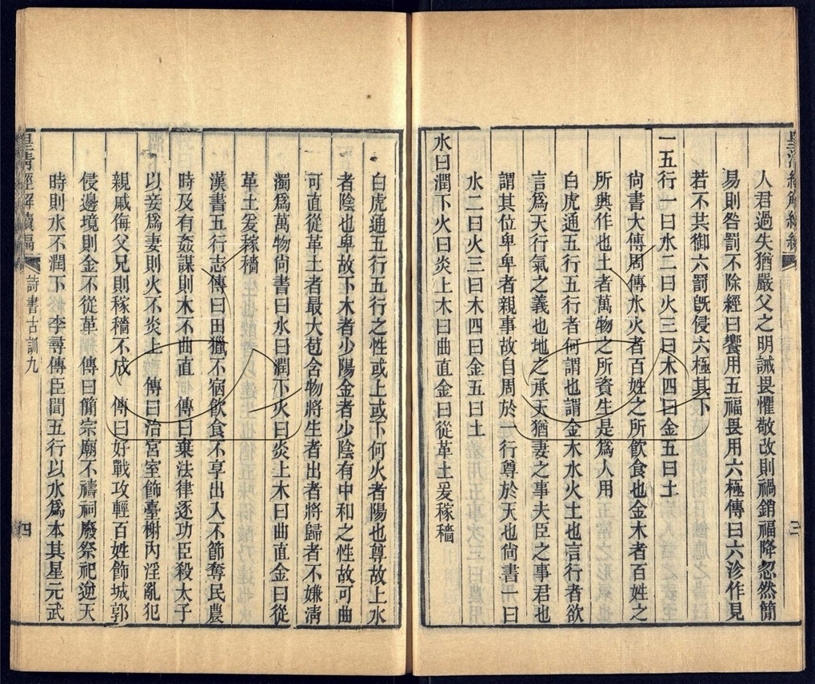 人君過失猶嚴父之明誡畏懼敬改則禍銷福降忽然簡
易則咎罰不除經曰饗用五福畏用六極傳曰六沴作見
若不共御六罰既侵六極其下
一五行一曰水二曰火三曰木四曰金五曰土
尙書大傳周傳水火者百姓之所飮食也金木者百姓之
所興作也土者萬物之所資生是爲人用
白虎通五行五行者何謂也謂金木水火土也言行者欲
言爲天行氣之義也地之承天猶妻之事夫臣之事君也
謂其位卑卑者親事故自周於一行尊於天也尙書一曰
水二曰火三曰木四曰金五曰土
水曰潤下火曰炎上木曰曲直金曰從革土爰稼穡
白虎通五行五行之性或上或下何火者陽也尊故上水
者陰也卑故下木者少陽金者少陰有中和之性故可曲
可直從革土者最大苞含物將生者出者將歸者不嫌淸
濁爲萬物尙書曰水曰潤下火曰炎上木曰曲直金曰從
革土爰稼穡
漢書五行志傳曰田獵不宿飮食不享出入不節奪民農
時及有姦謀則木不曲直　傳曰棄法律逐功臣殺太子
以妾爲妻則火不炎上　傳曰治宮室飾臺榭內淫亂犯
親戚侮父兄則稼穡不成　傳曰好戰攻輕百姓飾城郭
侵邊境則金不從革　傳曰簡宗廟不禱祠廢祭祀逆天
時則水不潤下　李尋傳臣聞五行以水爲本其星元武
皇淸經解續編
詩書古訓九
四